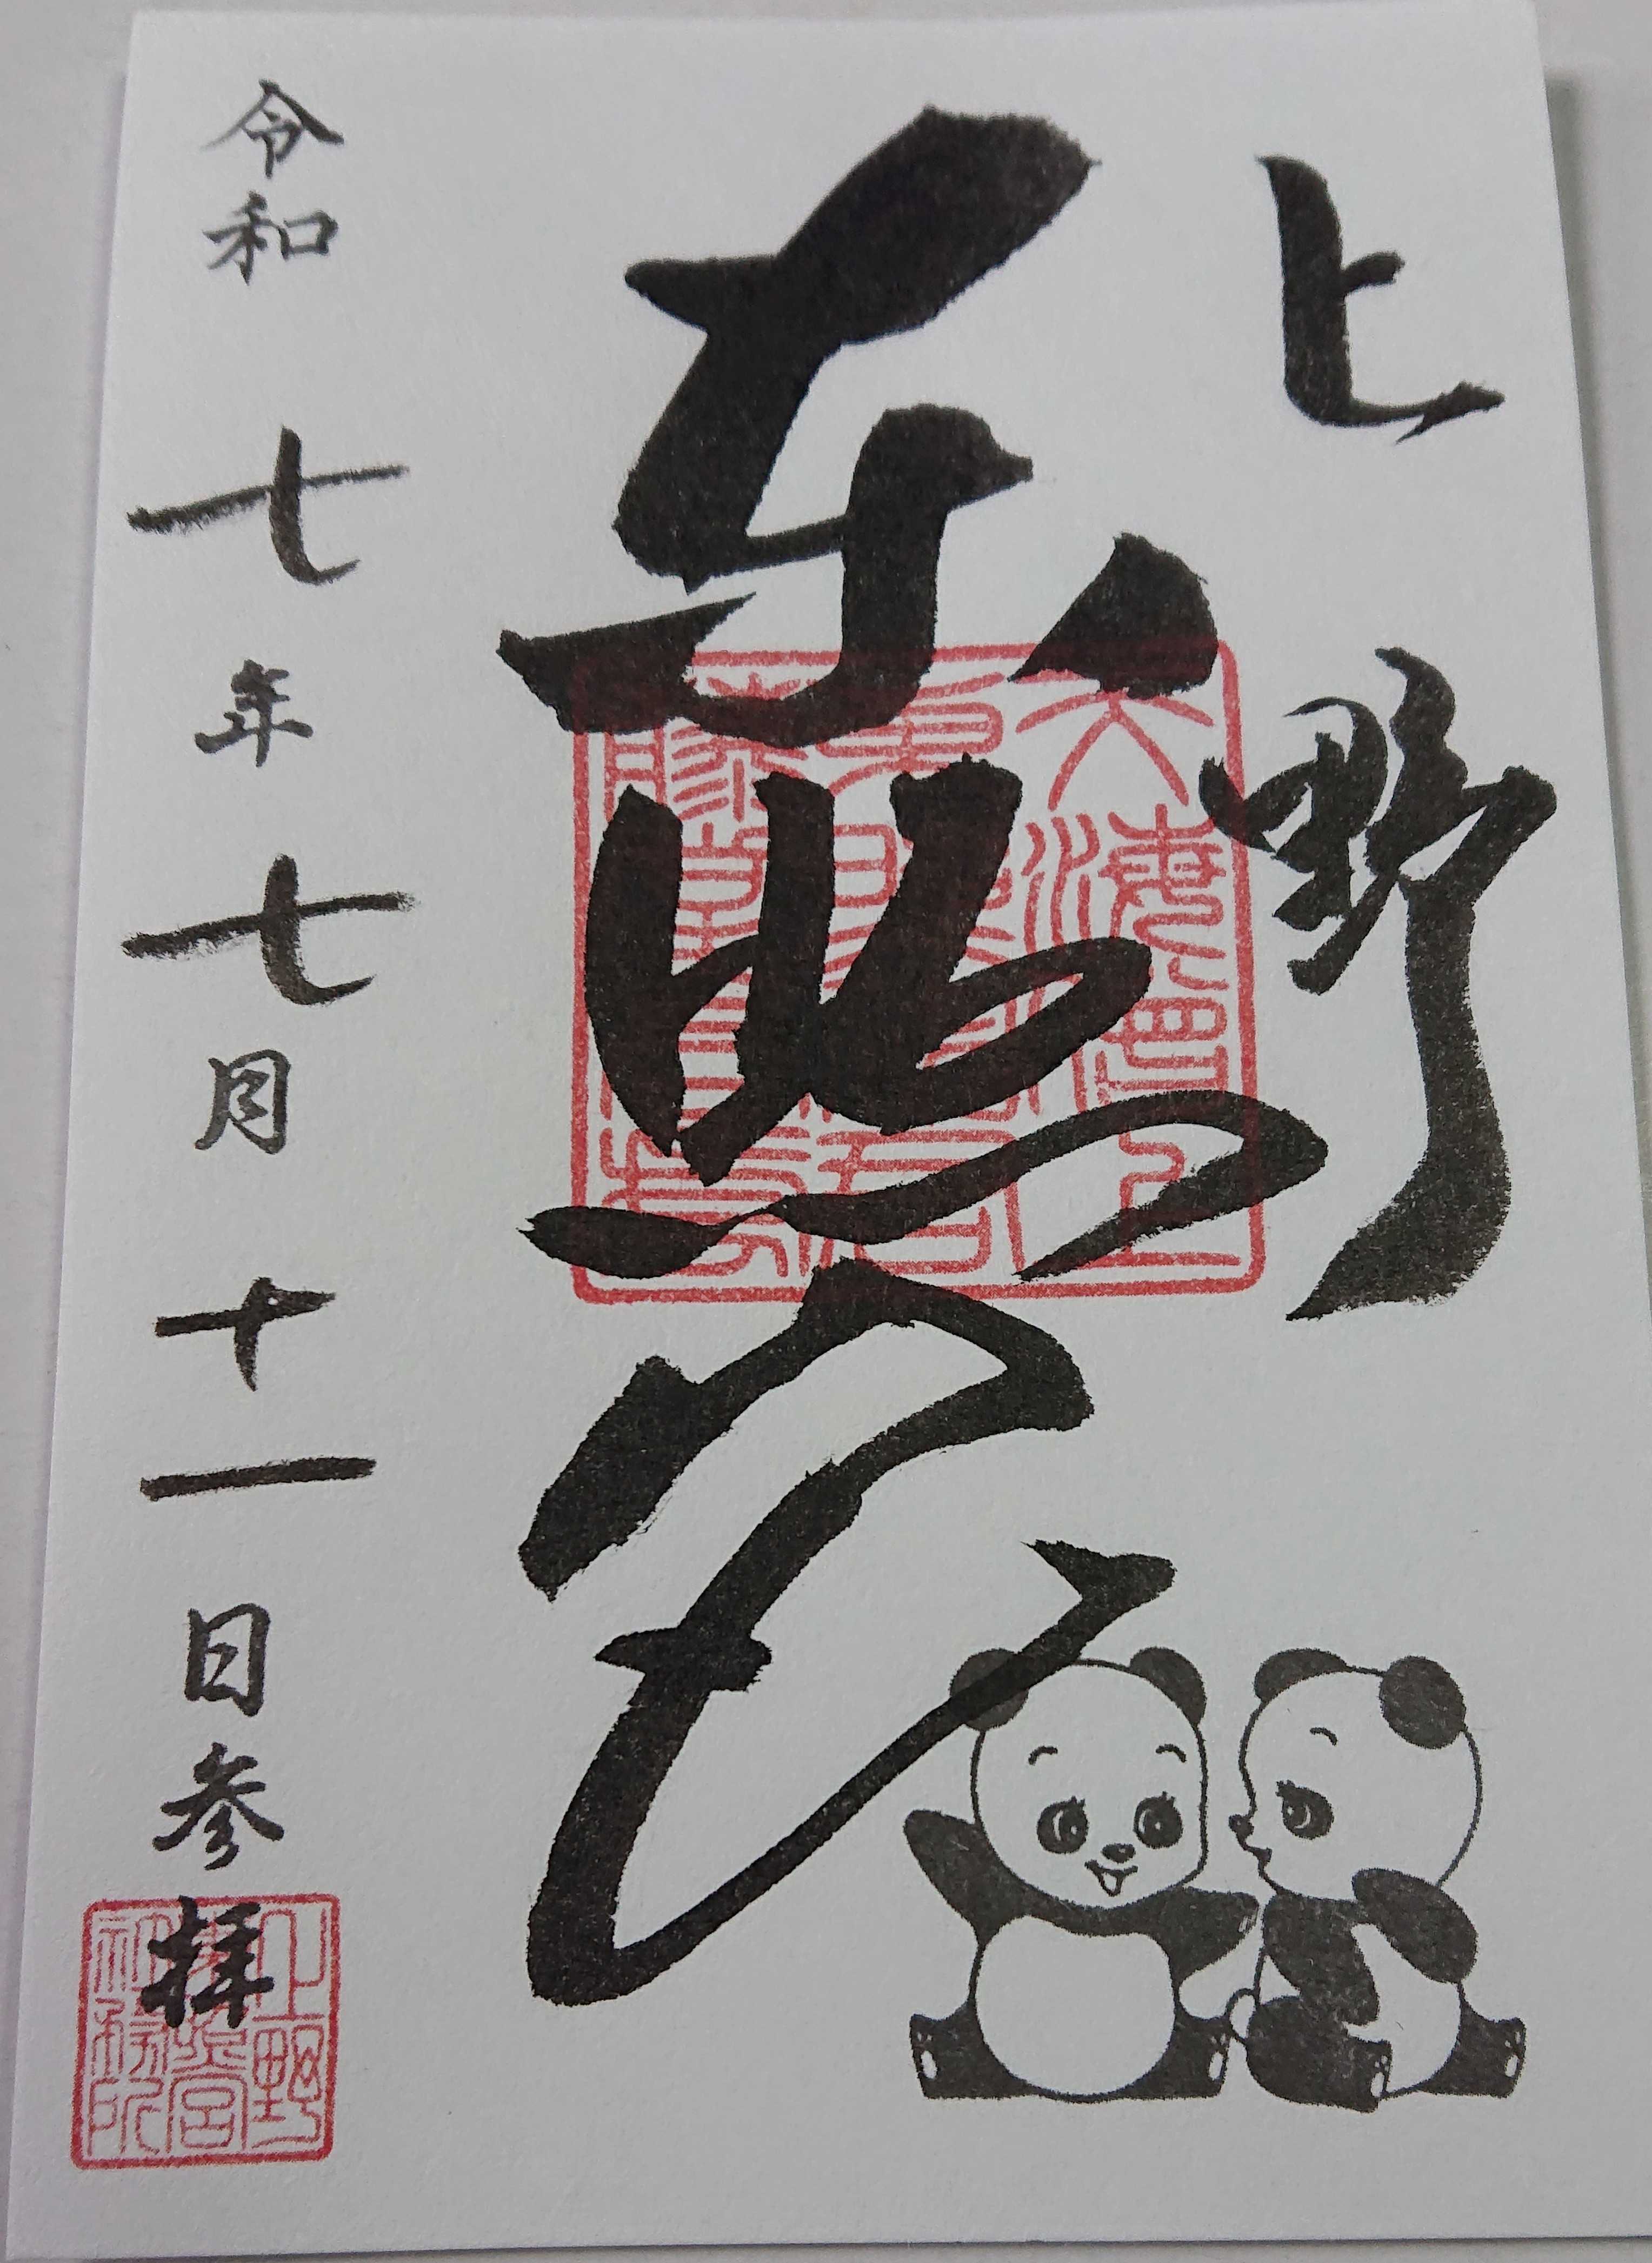 上野
東照宮
令和七年七月十一日参拝
上野
東照宮
社務所